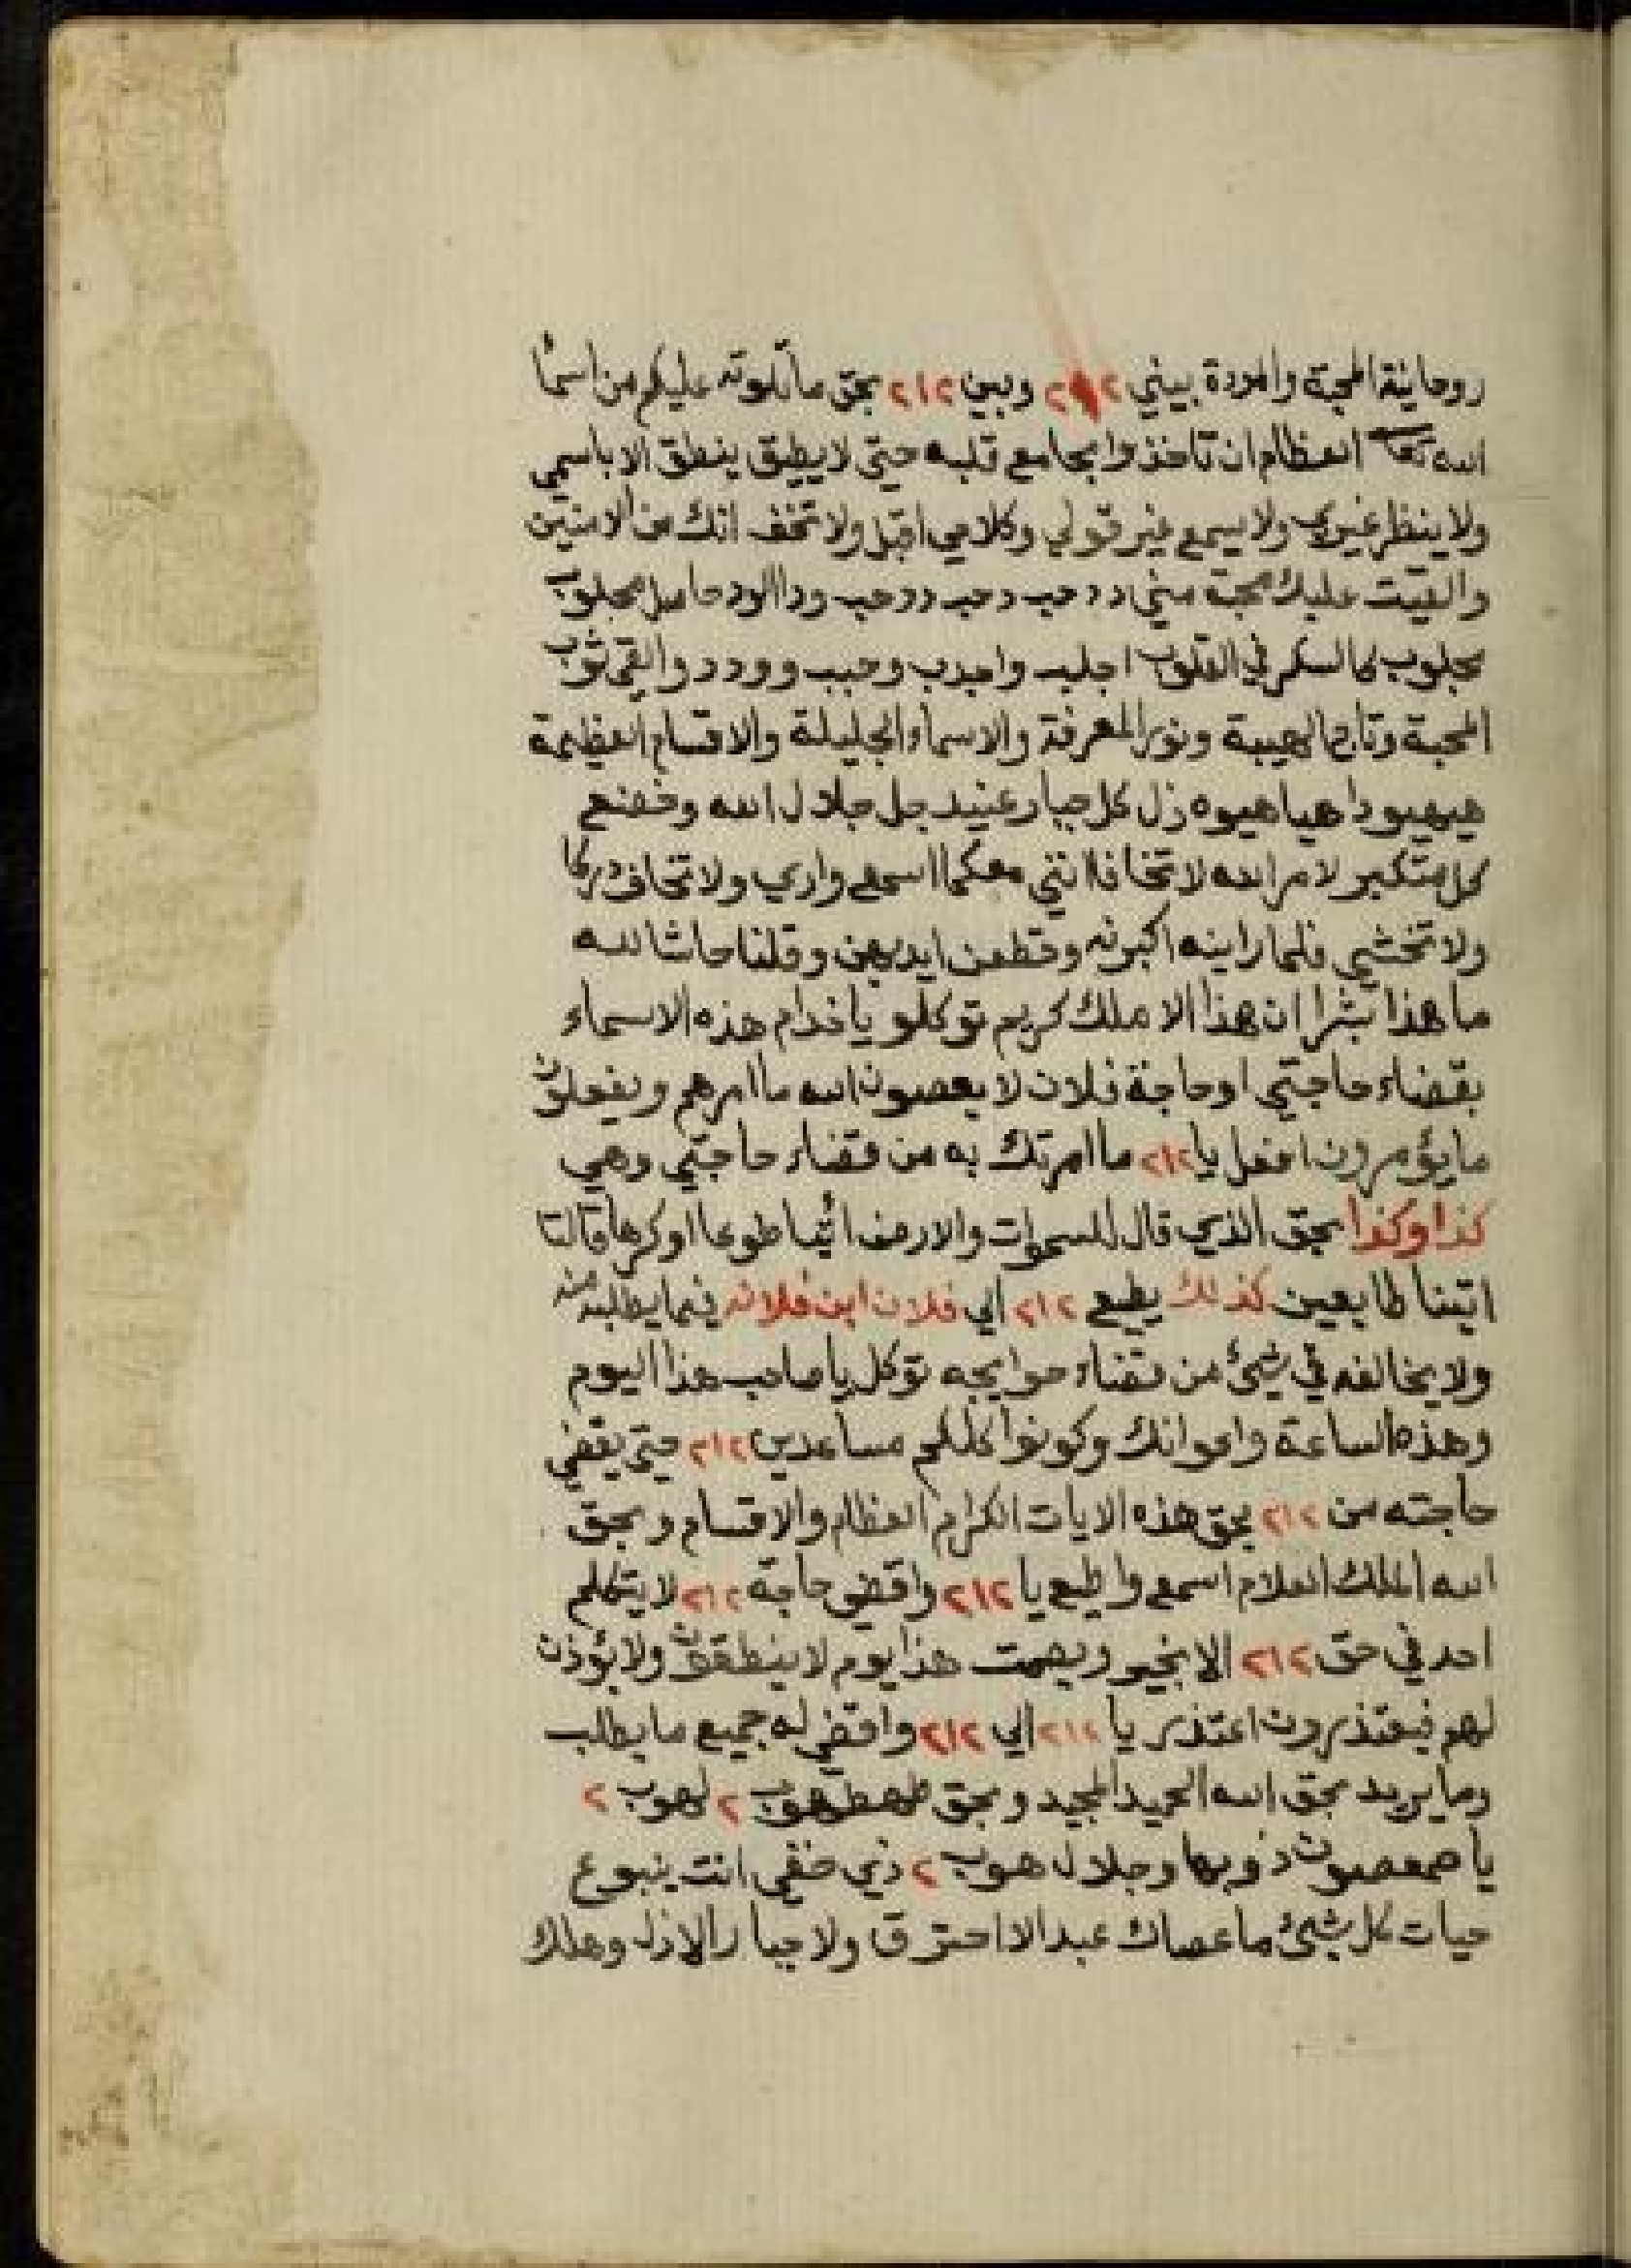 روحاينة المحبة والمودة بيني ٢١٢ وبين ٢١٢ بحق ما تلوته عليكم من اسمأ
الله تعا العظام ان تاخذوا بمجامع قلبه حتي لا يطيق ينطق الا باسمي
ولا ينظر غيري ولا يسمع غير قولي وكلامي اقبل ولا تخف انك من الامنين
والقيت عليك محبة مني محلوب
في القلوب اجلب واجدب وحبب وودد والقي ثوب
المحبة وتاج الهيبة ونور المعرفة والاسماء الجليلة والاقسام العظيمة
هيوه زل كل جبار عنيد جل جلال الله وخضع
كل متكبر لامر الله لا تخافا انني معكما اسمع واري ولا تخاف دركا
ولا تخشي فلما راينه اكبرنه وقطعن ايديهن وقلنا حاشا لله
ما هذا بشرا ان هذا الا ملك كريم توكلو يا خدام هذه الاسماء
بقضاء حاجتي او حاجة فلان لا يعصون الله ما امرهم ويفعلون
ما يؤمرون افعل يا ٢١٢ ما امرتك به من قضاء حاجتي وهي
كذا وكذا بحق الذي قال للسموات والارض ائتيا طوعا او كرها قالتا
اتينا طايعين كذلك يطيع ٢١٢ الي فلان ابن فلانه فيما يطلبه منه
ولا يخالفه في شيئ من قضاء حوايجه توكل يا صاحب هذا اليوم
وهذه الساعة واعوانك وكونوا كلكم مساعدين ٢١٢ حتي يقضي
حاجته من ٢١٢ بحق هذه الايات الكرام العظام والاقسام وبحق
الله الملك العلام اسمع واطيع يا ٢١٢ واقضي حاجة ٢١٢ لا يتكلم
احد في حق ٢١٢ الا بخير ويصمت هذا يوم لا ينطقون ولا يؤذن
لهم فيعتذرون اعتذر يا ٢١٢ الي ٢١٢ واقضي له جميع ما يطلب
وما يريد بحق الله الحميد المجيد وبحق طهطهوب ٢ لهوب ٢
يا وجلال هوب ٢ انت ينبوع
حيات كل شيئ ما عصاك عبد الا احترق ولا جبار الا ذل وهلك